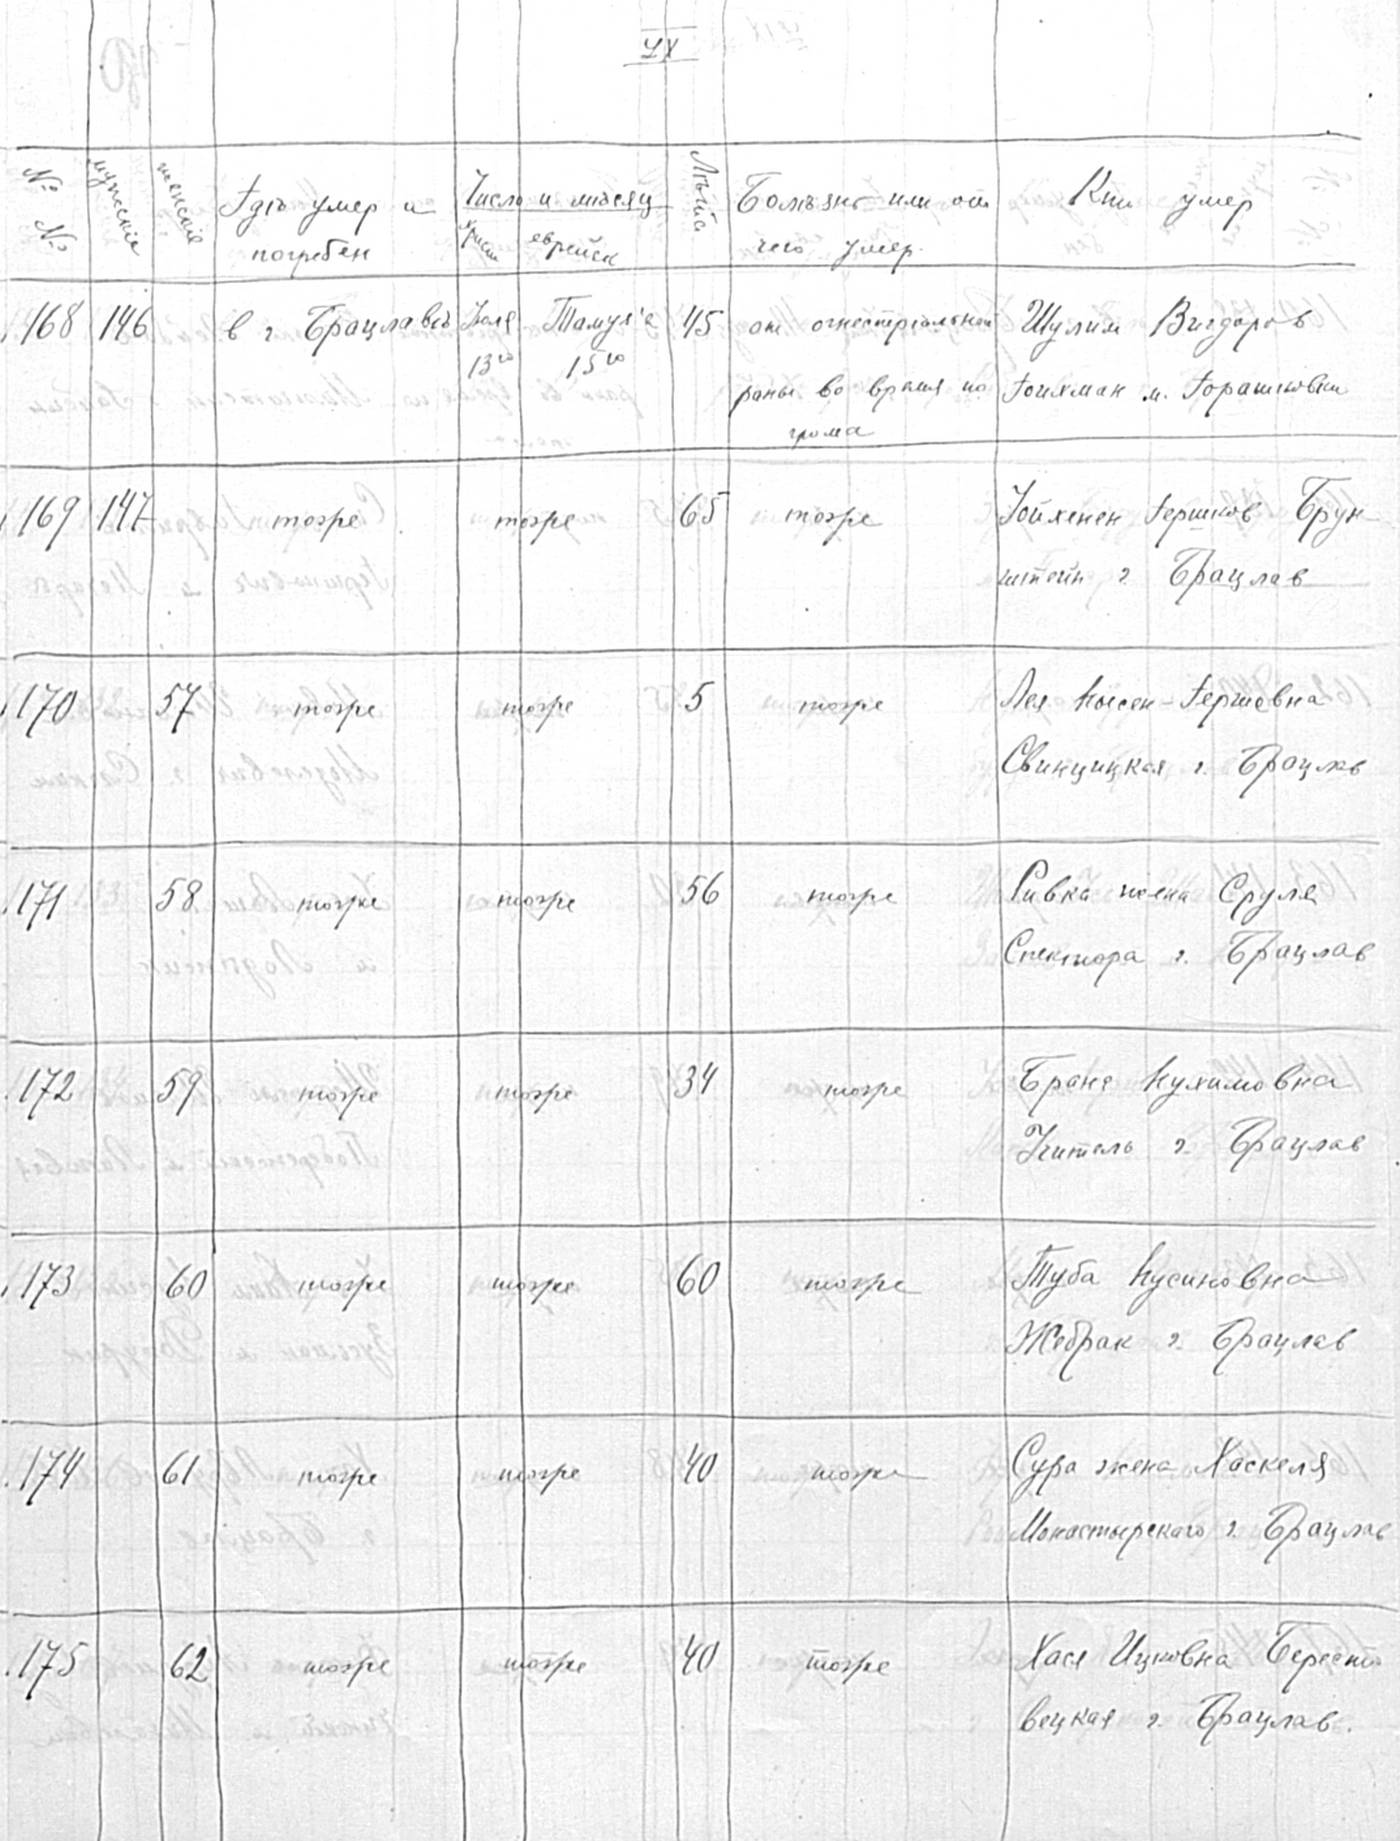 № №
мужскіе
женскіе
Гдѣ умер и
погребен
Число и мѣсяц
христ
еврейск
Лѣта
Болѣзнь или от
чего умер
Кто умер
168 146 в г. Брацлавѣ Іюля Тамуз'а 45 от огнестрѣльной Шулим Вигдоров
13го 15го раны во время по Гойхман м. Горашковки
грома
169 147 тоже тоже 65 тоже Іойхенен Гершков Брун
штейн г. Брацлав
170 57 тоже тоже 5 тоже Лея Нысен-Гершовна
Свинцицкая г. Брацлав
171 58 тоже тоже 56 тоже Ривка жена Сруля
Спектора г. Брацлав
172 59 тоже тоже 34 тоже Браня Нухимовна
Учитель г. Брацлав
173 60 тоже тоже 60 тоже Туба Нусиновна
Жебрак г. Брацлав
174 61 тоже тоже 40 тоже Сура жена Хаскеля
Монастырскаго г. Брацлав
175 62 тоже тоже 40 тоже Хася Ицковна Берести
вецкая г. Брацлав.